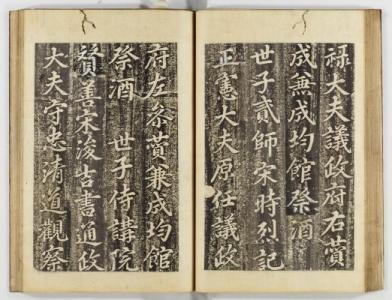 祿大夫議政府右贊
成兼成均館祭酒
世子貳師宋時烈記
正憲大夫原任議政
府左參贊兼成均館
祭酒 世子侍講院
贊善宋浚吉書通政
大夫守忠清道觀察